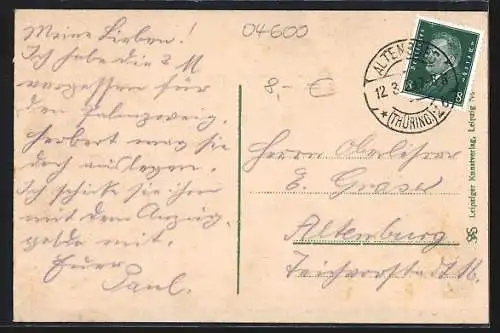 04600
8,- €
Meine Lieben!
Ich habe die 3 M
vergessen für
den Palmzweig.
Herbert mag sie
doch auslegen.
Ich schicke sie ihm
mit dem Anzug-
gelde mit.
Euer
Paul.
ALTENBURG
12.3
* (THÜRING) 2
8 8
Herrn Oberlehrer
E. Grase
Altenburg
Teichvorstadt 16.
Leipziger Kunstverlag, Leipzig